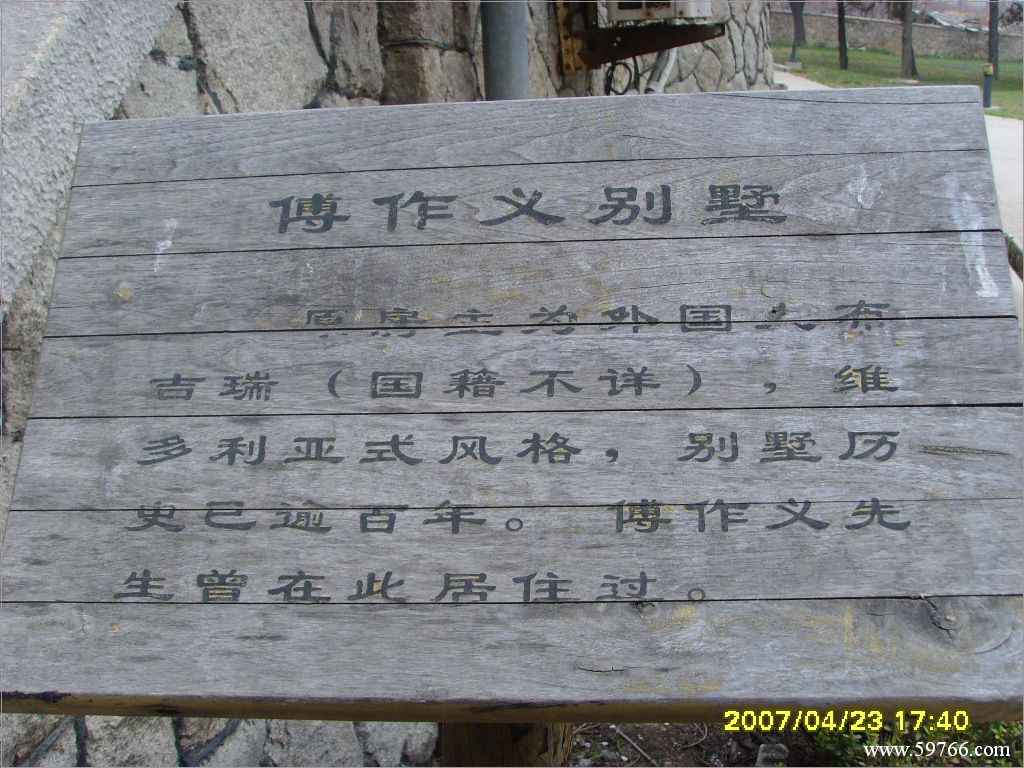 傅作义别墅
原房主为外国人布
吉瑞（国籍不详），维
多利亚式风格，别墅历
史已逾百年。傅作义先
生曾在此居住过。
2007/04/23 17:40
www.59766.com